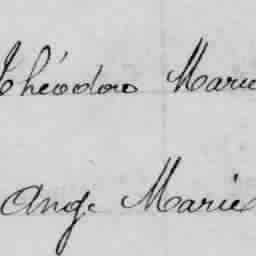 Théodore Marie
Ange Marie